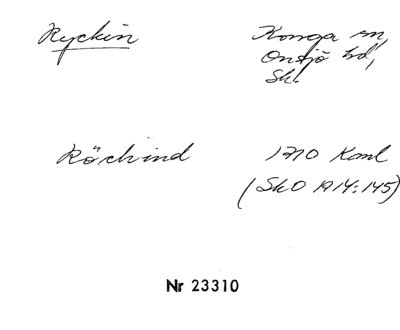 Ryckin Konga sn,
Onsjö hd,
Sk.
Röckind 1710 Koml
(SkO 1914:145)
Nr 23310